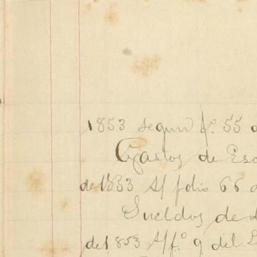 1853 segun f. 55 d
Gastos de Esc
de 1853 S/ folio 66 d
Sueldos de
de 1853 S/f.º 9 del L